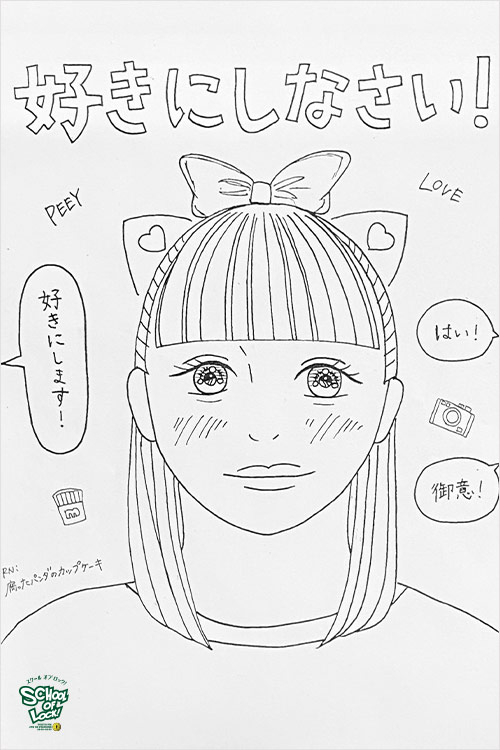 好きにしなさい!
PEEY
LOVE
好きにします!
はい!
御意!
RN:
腐ったパンダのカップケーキ
スクール オブ ロック!
SCHOOL
OF
LOCK!